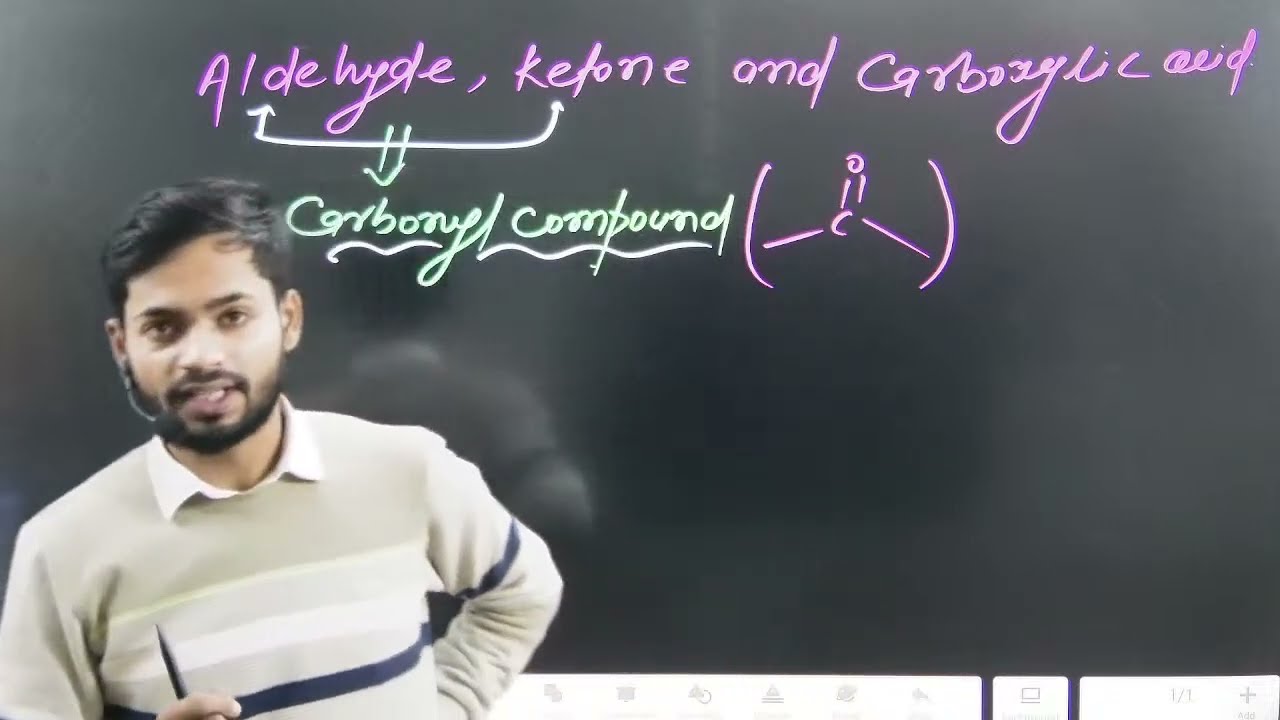 Aldehyde, Ketone and Carboxylic acid.
Carbonyl compound ( O
C )
1/1
Add